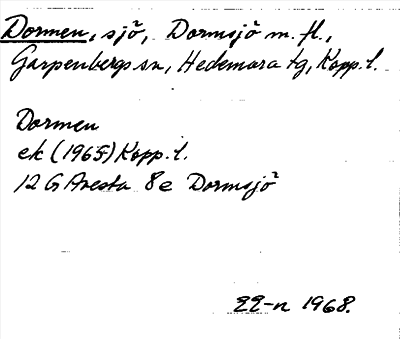 Dormen, sjö, Dormsjö m. fl.,
Garpenbergs sn, Hedemora tg, Kopp. l.
Dormen
ek (1965) Kopp. l.
12 G Avesta 8e Dormsjö
22-n 1968.